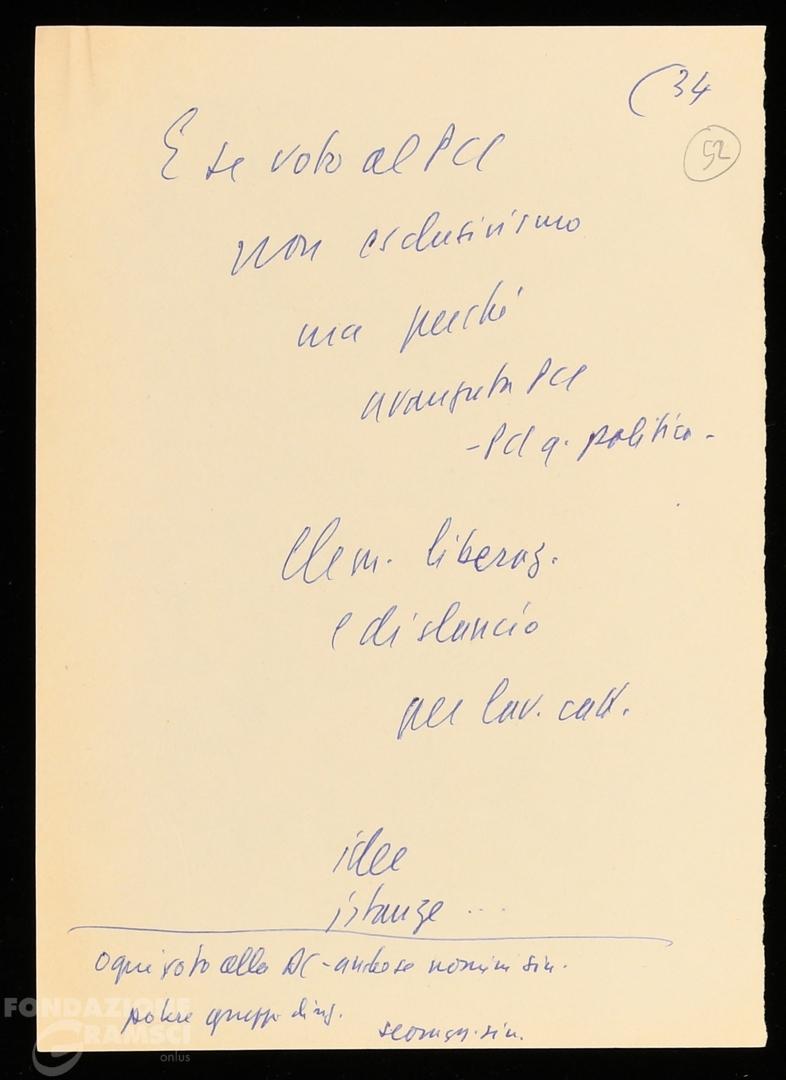 (34
52
E se voto al PCI
non esclusivismo
ma perché
avanzata PCI
- PCI q. politica -
Elem. liberaz.
e di slancio
per lav. catt.
idee
istanze ...
ogni voto alla DC - anche se nomini sin.
potere gruppo dirig.
sin.
FONDAZIONE
GRAMSCI
onlus